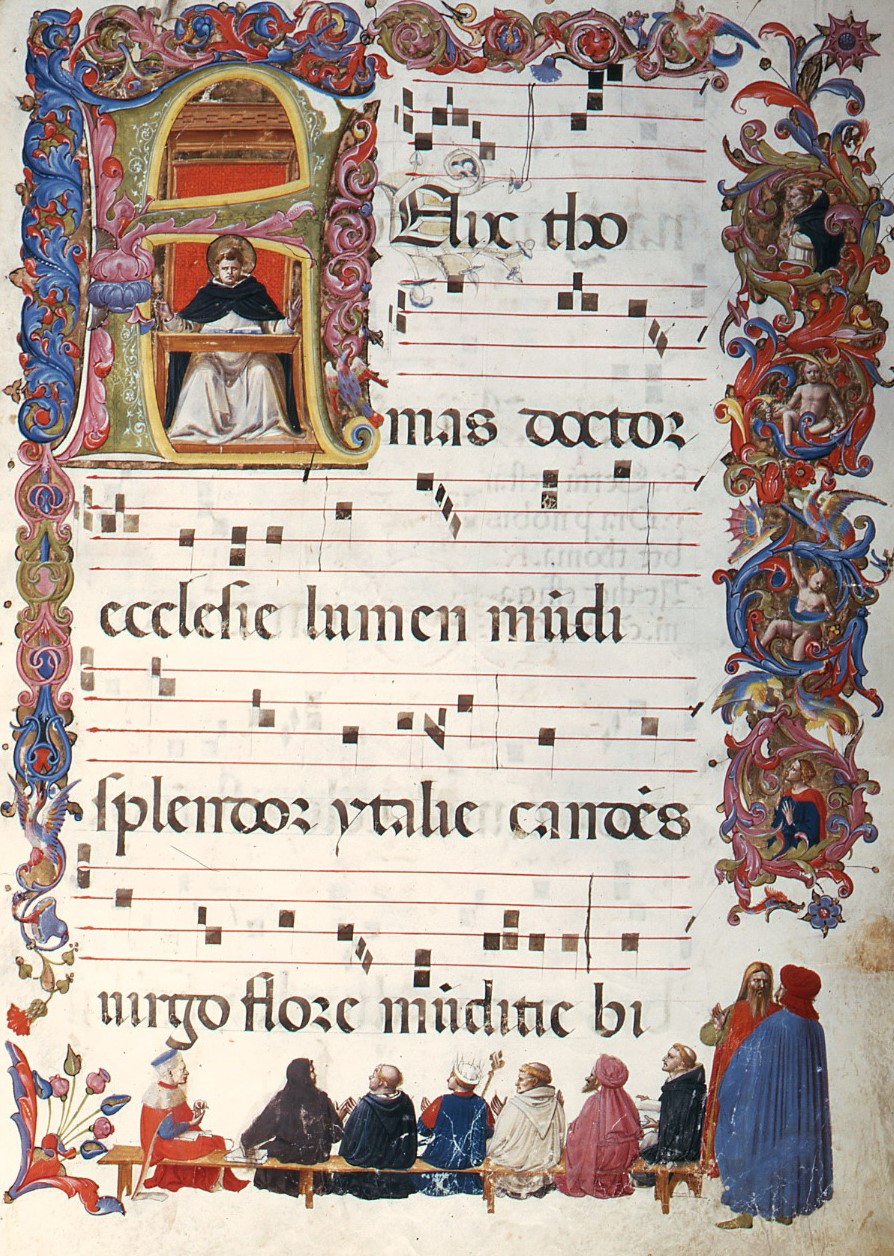 FElix tho
mas doctor
ecclesie lumen mūdi
splendor ytalie candēs
uirgo flore mūditie bi